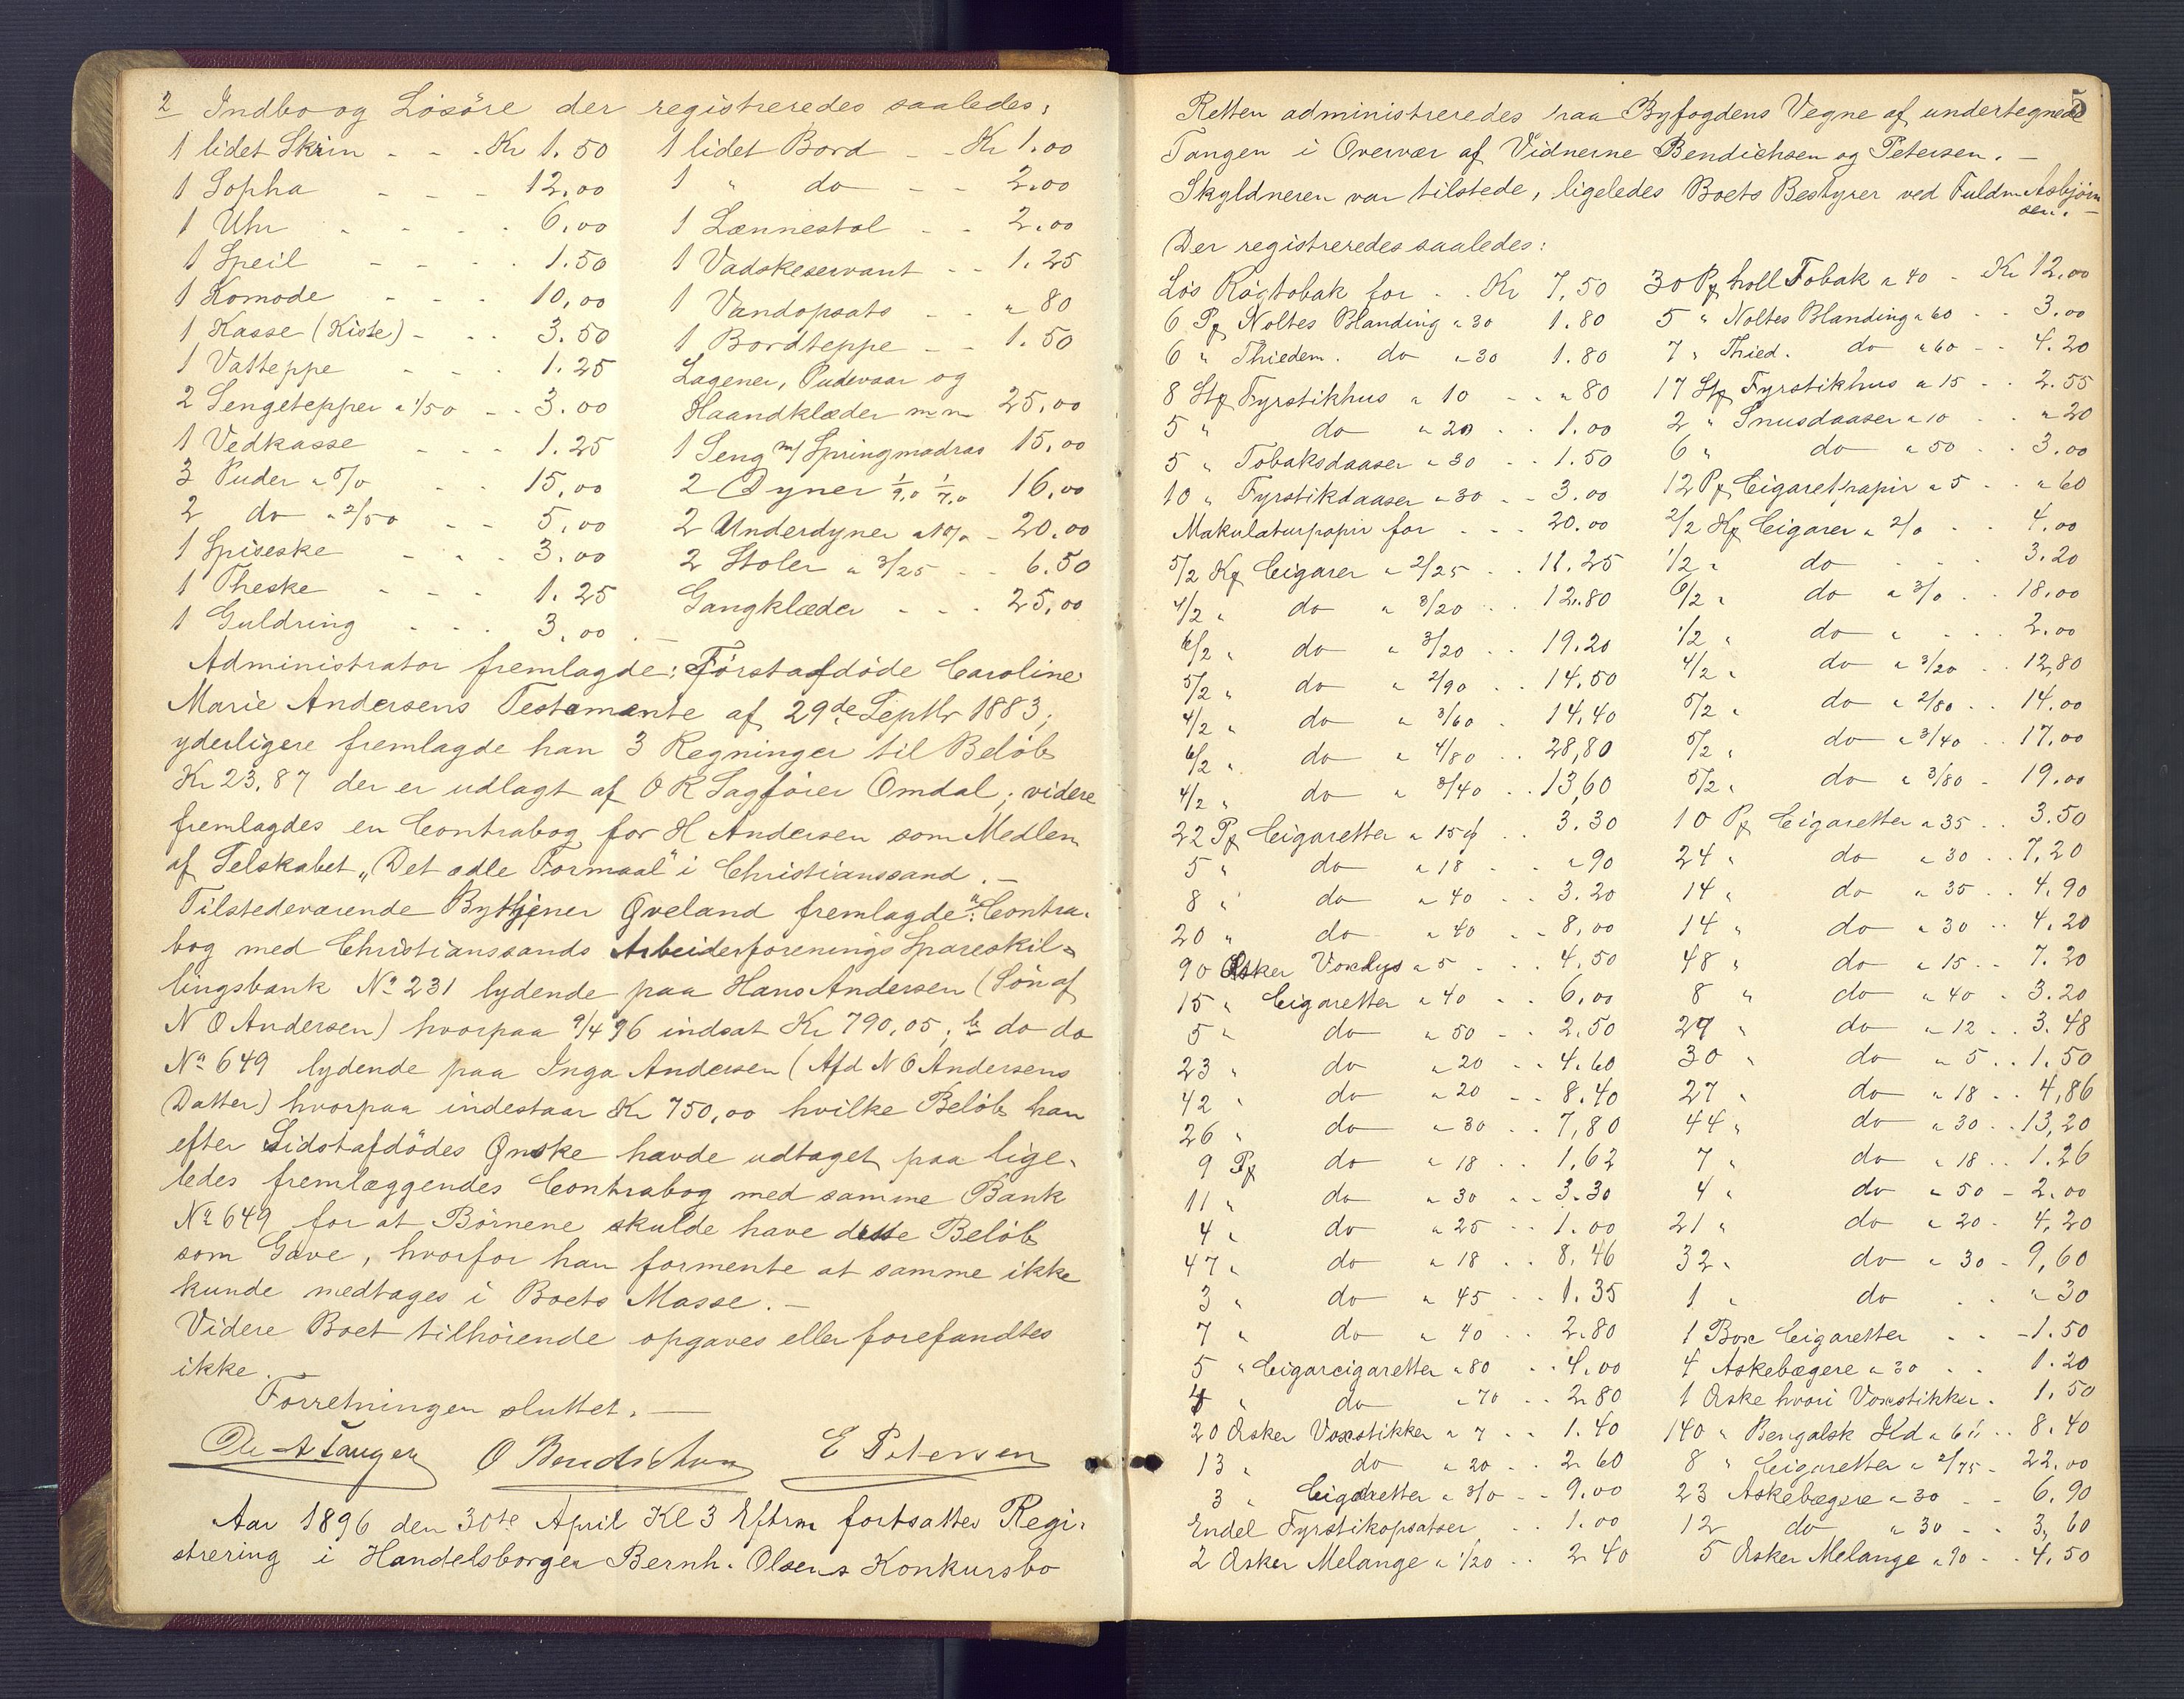 2 Indbo og Løsøre der registreredes saaledes:
1 lidet Skrin - - - Kr 1.50 1 lidet Bord - - Kr 1.00
1 Sopha - - - 12,00 1 " do - - 2.00
1 Uhr - - - 6,00 1 Lænnestol - - 2.00
1 Speil - - - 1.50 1 Vadskeservant - - 1.25
1 Komode - - - 10,00 1 Vandopsats - - " 80
1 Kasse (Kiste) - - - 3.50 1 Bordteppe - - 1.50
1 Vatteppe - - - 1.25 Lagener, Pudevaar og
2 Sengetepper a 1/50 - - 3.00 Haandklæder m m 25,00
1 Vedkasse - - - 1.25 1 Seng m/ Springmadras 15,00
3 Puder a 5/0 - - 15,00 2 Dyner 1/9,0 1/7,0 16,00
2 do a 2/50 - - 5,00 2 Underdyner a 10/0 - 20.00
1 Spiseske - - - 3.00 2 Stoler a 3/25 - - 6.50
1 Theske - - - 1.25 Gangklæder - - - 25,00
1 Guldring - - - 3,00.—
Administrator fremlagde: Førstafdøde Caroline
Marie Andersens Testamente af 29de Septbr 1883,
yderligere fremlagde han 3 Regninger til Beløb
Kr 23,87 der er udlagt af O R Sagfører Omdal; videre
fremlagdes en Contrabog for H Andersen som Medlem
af Selskabet „Det ædle Formaal" i Christianssand.—
Tilstedeværende Bytjener Øveland fremlagde a: Contra-
bog med Christianssands Arbeiderforenings Spareskil-
lingsbank No 231 lydende paa Hans Andersen (Søn af
N O Andersen) hvorpaa 9/4 96 indsat Kr 790,05; b do do
No 649 lydende paa Inga Andersen (Afd N O Andersens
Datter) hvorpaa indestaar Kr 750,00 hvilke Beløb han
efter Sidstafdødes Ønske havde udtaget paa lige-
ledes fremlæggendes Contrabog med samme Bank
No 649 for at Børnene skulde have disse Beløb
som Gave, hvorfor han formente at samme ikke
kunde medtages i Boets Masse.—
Videre Boet tilhørende opgaves eller forefandtes
ikke.
Forretningen sluttet.—
A Tangen O Bendichsen E Petersen
Aar 1896 den 30te April Kl 3 Eftrm fortsattes Regi-
strering i Handelsborger Bernh. Olsens Konkursbo
5
Retten administreredes paa Byfogdens Vegne af undertegnede
Tangen i Overvær af Vidnerne Bendichsen og Petersen.—
Skyldneren var tilstede, ligeledes Boets Bestyrer ved Fuldm Asbjørn
sen.—
Der registreredes saaledes:
Løs Røgtobak for - - Kr 7,50 30 Pf holl Tobak a 40 - Kr 12,00
6 Pf Noltes Blanding a 30 1.80 5 " Noltes Blanding a 60 - - 3.00
6 " Thiedem. do a 30 1.80 7 " Thied. do a 60 - - 4.20
8 Stk Fyrstikhus a 10 - - " 80 17 Stk Fyrstikhus a 15 - - 2.55
5 " do a 20 - - 1.00 2 " Snusdaaser a 10 - - " 20
5 " Tobaksdaaser a 30 - - 1.50 6 " do a 50 - - 3.00
10 " Fyrstikdaaser a 30 - - 3.00 12 Pf Cigaretpapir a 5 - - " 60
Makulaturpapir for - - - 20.00 2/2 Kf Cigarer a 2/0 - - 4.00
5/2 Kf Cigarer a 2/25 - - 11.25 1/2 " do - - - 3.20
4/2 " do a 3/20 - - 12.80 6/2 " do a 3/0 - - 18.00
6/2 " do a 3/20 - - 19.20 1/2 " do a - - - 2.00
5/2 " do a 2/90 - - 14.50 4/2 " do a 3/20 - - 12,80
4/2 " do a 3/60 - 14,40 5/2 " do a 2/80 - - 14.00
6/2 " do a 4/80 - - 28,80 5/2 " do a 3/40 - - 17.00
4/2 " do a 3/40 - - 13,60 5/2 " do a 3/80 - 19.00
22 Pf Cigaretter a 15 - - 3.30 10 Pf Cigaretter a 35 - - 3.50
5 " do a 18 - - " 90 24 " do a 30 - - 7,20
8 " do a 40 - - 3.20 14 " do a 35 - - 4.90
20 " do a 40 - - 8,00 14 " do a 30 - - 4,20
90 Æsker Voxlys a 5 - - - 4.50 48 " do a 15 - - 7.20
15 " Cigaretter a 40 - - 6,00 8 " do a 40 - 3.20
5 " do a 50 - - 2.50 29 " do a 12 - - 3.48
23 " do a 20 - - 4.60 30 " do a 5 - - 1.50
42 " do a 20 - - 8.40 27 " do a 18 - - 4,86
26 " do a 30 - - 7,80 44 " do a 30 - - 13,20
9 Pf do a 18 - - 1,62 7 " do a 18 - - 1.26
11 " do a 30 - - 3.30 4 " do a 50 - 2.00
4 " do a 25 - - 1.00 21 " do a 20 - 4,20
47 " do a 18 - - 8,46 32 " do a 30 - 9,60
3 " do a 45 - - 1.35 1 " do - - " 30
7 " do a 40 - - 2.80 1 Box Cigaretter - - - 1.50
5 " Cigarcigaretter a 80 - - 4.00 4 Askebægere a 30 - - 1.20
4 " do a 70 - - 2.80 1 Æske hvori Voxstikker - 1.50
20 Æsker Voxstikker a 7 - - 1.40 140 " Bengalsk Ild a 6 - - 8.40
13 " do a 20 - - 2.60 8 " Cigaretter a 2/75 - 22.00
3 " Cigaretter a 3/0 - - 9.00 23 Askebægere a 30 - - 6.90
Endel Fyrstikopsatser - - 1.00 12 do a 30 - - 3,60
2 Æsker Melange a 1/20 - - 2.40 5 Æsker Melange a 90 - - 4.50